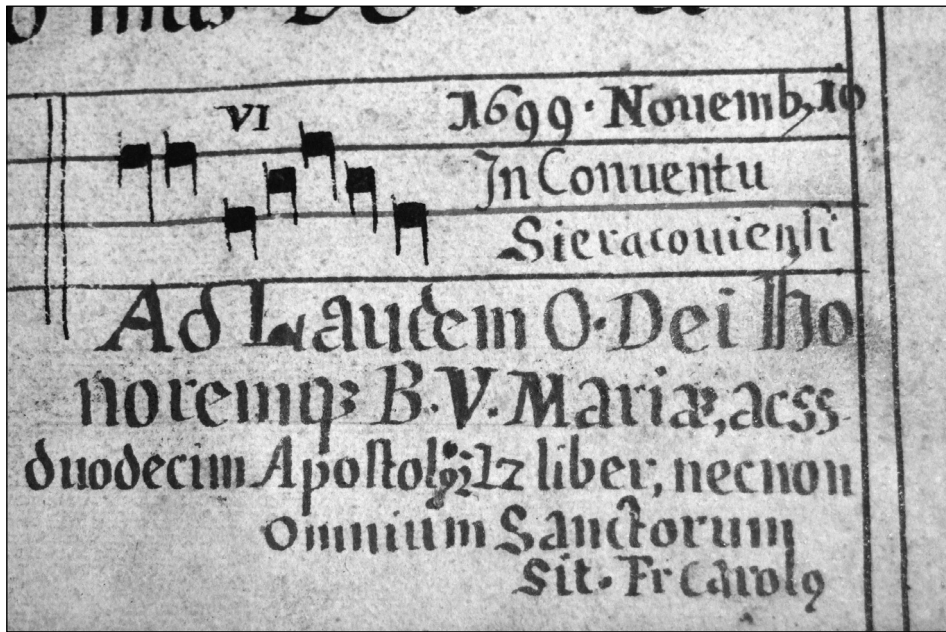 VI
1699. Nouemb, 10
In Conuentu
Sieracouiensi
Ad Laudem O. Dei Ho
noremq3 B. V. Mariæ, ac ss
duodecim Apostol 12 liber, necnon
omnium Sanctorum
Sit. Fr Carol9